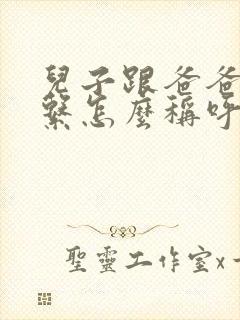 兒子跟爸爸
繫怎麼稱呼
聖靈工作室x一